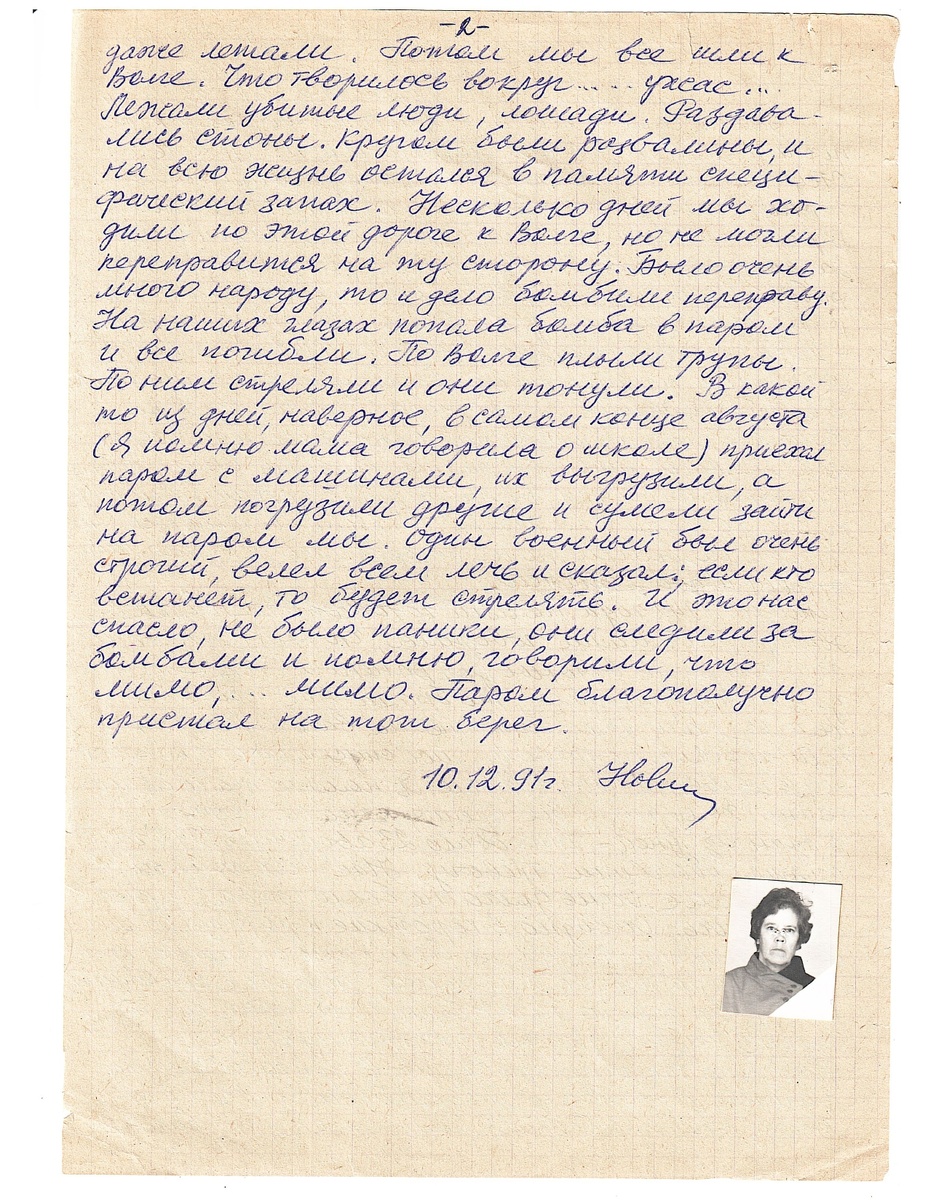 -2-
даже летали. Потом мы все шли к
Волге. Что творилось вокруг..... ужас...
Лежали убитые люди, лошади. Раздава-
лись стоны. Кругом были развалины, и
на всю жизнь остался в памяти специ-
фический запах. Несколько дней мы хо-
дили по этой дороге к Волге, но не могли
переправится на ту сторону. Было очень
много народу, то и дело бомбили переправу.
На наших глазах попала бомба в паром
и все погибли. По Волге плыли трупы.
По ним стреляли и они тонули. В какой
то из дней, наверное, в самом конце августа
(я помню мама говорила о школе) приехал
паром с машинами, их выгрузили, а
потом погрузили другие и сумели зайти
на паром мы. Один военный был очень
строгий, велел всем лечь и сказал:, если кто
встанет, то будет стрелять. И это нас
спасло, не было паники, они следили за
бомбами и помню, говорили, что
мимо,... мимо. Паром благополучно
пристал на тот берег.
10.12.91г.